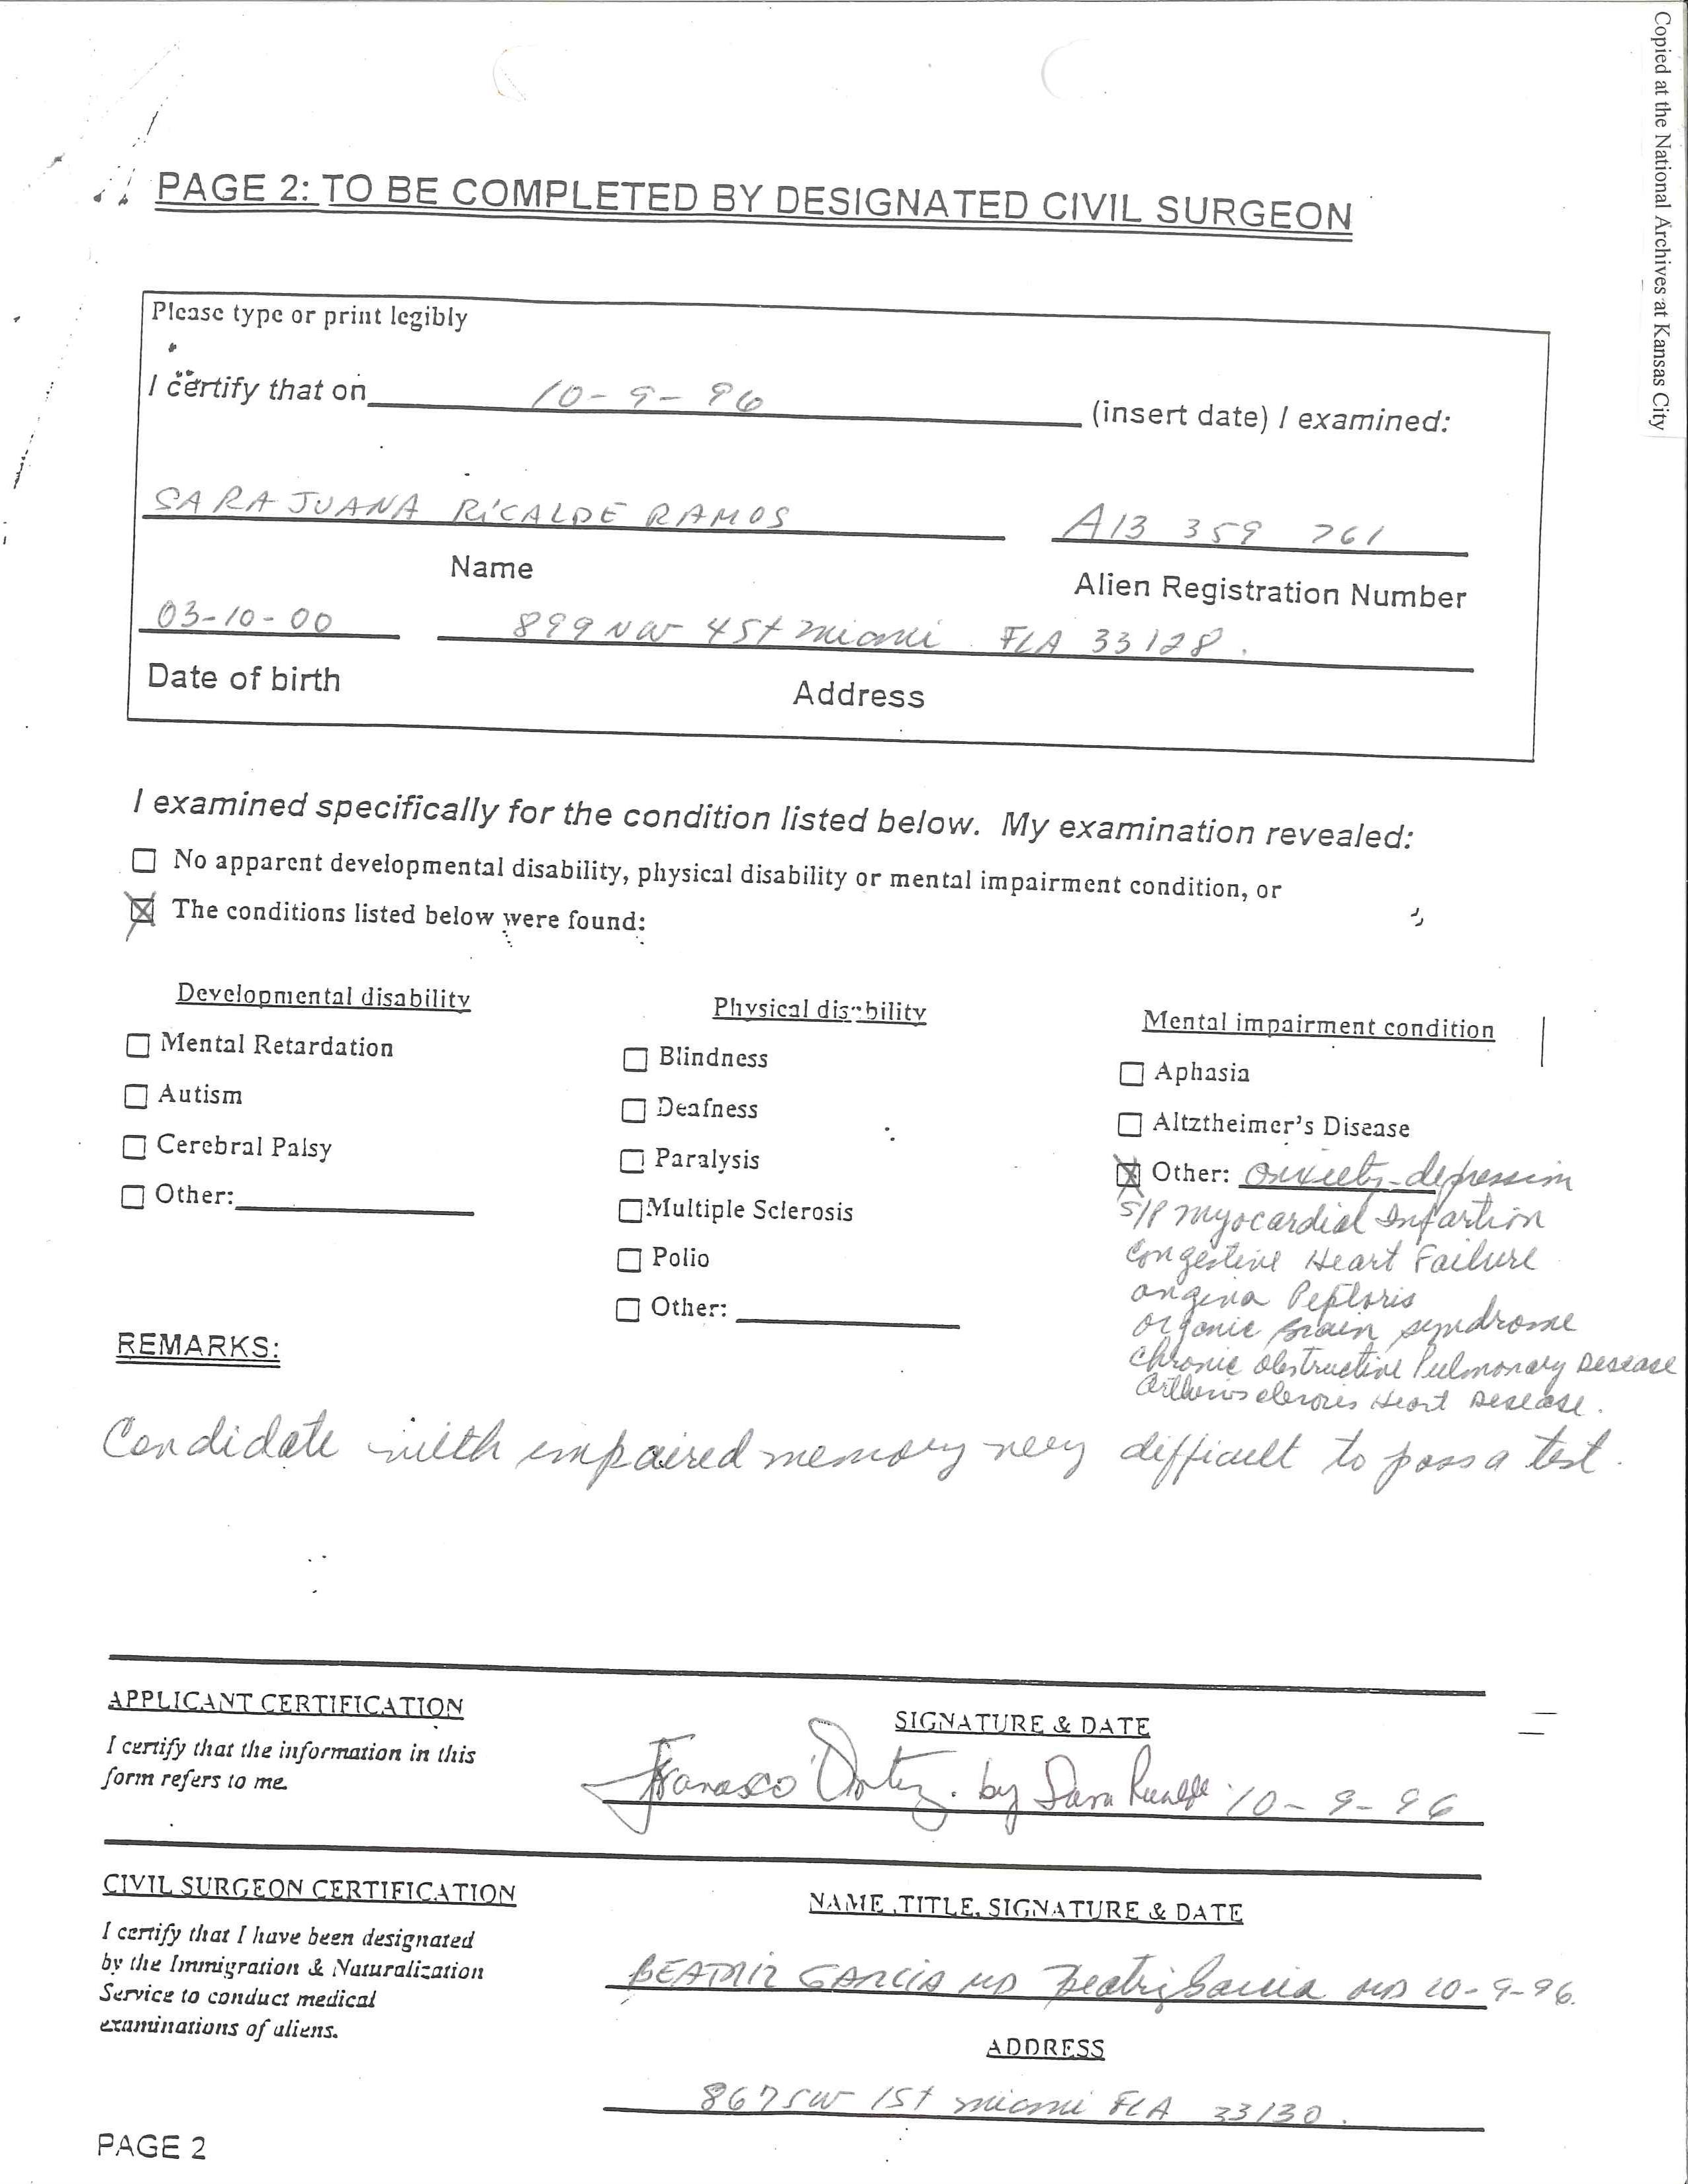 Copied at the National Archives at Kansas City
PAGE 2: TO BE COMPLETED BY DESIGNATED CIVIL SURGEON
Please type or print legibly
I certify that on 10-9-96 (insert date) I examined:
SARA JUANA RICALDE RAMOS A13 359 761
Name Alien Registration Number
03-10-00 899 NW 4 St Miami FLA 33128.
Date of birth Address
I examined specifically for the condition listed below. My examination revealed:
No apparent developmental disability, physical disability or mental impairment condition, or
The conditions listed below were found:
Developmental disability
Mental Retardation
Autism
Cerebral Palsy
Other:
Physical disability
Blindness
Deafness
Paralysis
Multiple Sclerosis
Polio
Other:
Mental impairment condition
Aphasia
Altztheimer's Disease
Other: anxiety-depression
S/P Myocardial Infartion
Congestive Heart Failure
angina
organic brain syndrome
chronic obstructive Pulmonary Desease
Heart Desease.
REMARKS:
Candidate with impaired memory very difficult to pass a test.
APPLICANT CERTIFICATION
I certify that the information in this
form refers to me.
SIGNATURE & DATE
Ortiz. by Sara 10-9-96
CIVIL SURGEON CERTIFICATION
I certify that I have been designated
by the Immigration & Naturalization
Service to conduct medical
examinations of aliens.
NAME, TITLE, SIGNATURE & DATE
BEATRIZ GARCIA MD Beatriz Garcia MD 10-9-96.
ADDRESS
867 SW 1St Miami FLA 33130.
PAGE 2